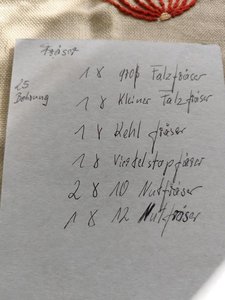 Fräser
25
Bohrung
1 x groß Falzfräser
1 x Kleiner Falzfräser
1 x Kehl fräser
1 x Viertelstapfräser
2 x 10 Nutfräser
1 x 12 Nutfräser